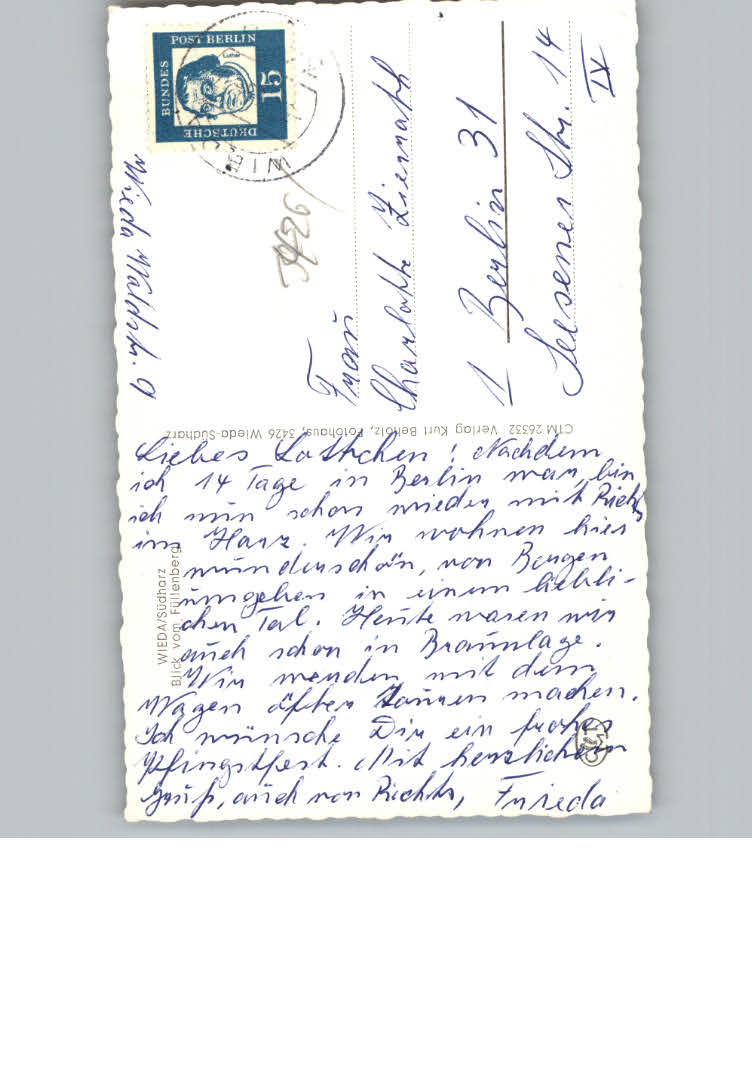 Liebes Lottchen! Nachdem
ich 14 Tage in Berlin war, bin
ich nun schon wieder mit
im Harz. Wir wohnen hier
wunderschön, von Bergen
umgeben in einem liebli-
chen Tal. Heute waren wir
auch schon in Braunlage.
Wir werden mit dem
Wagen öfter Touren machen.
Ich wünsche Dir ein frohes
Pfingstfest. Mit herzlichem
Gruß, auch von Frieda
Wieda Waldstr. 9
3426
Frau
Charlotte
1 Berlin 31
Seesener Str. 14
IV
DEUTSCHE
BUNDES
POST BERLIN
15
Luther
WIE
WIEDA/Südharz
Blick vom Füllenberg
CTM 26332 Verlag Kurt Beholz, Fotohaus, 3426 Wieda-Südharz